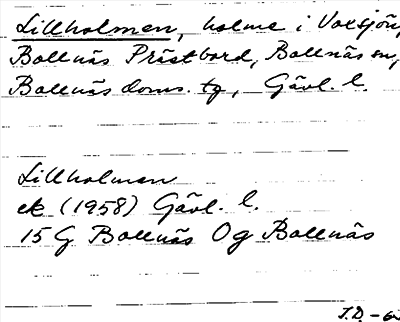 Lillholmen, holme i Voxsjön,
Bollnäs Prästbord, Bollnäs sn,
Bollnäs doms. tg, Gävl. l.
Lillholmen
ek (1958) Gävl. l.
15 G Bollnäs Og Bollnäs
J.D. -6